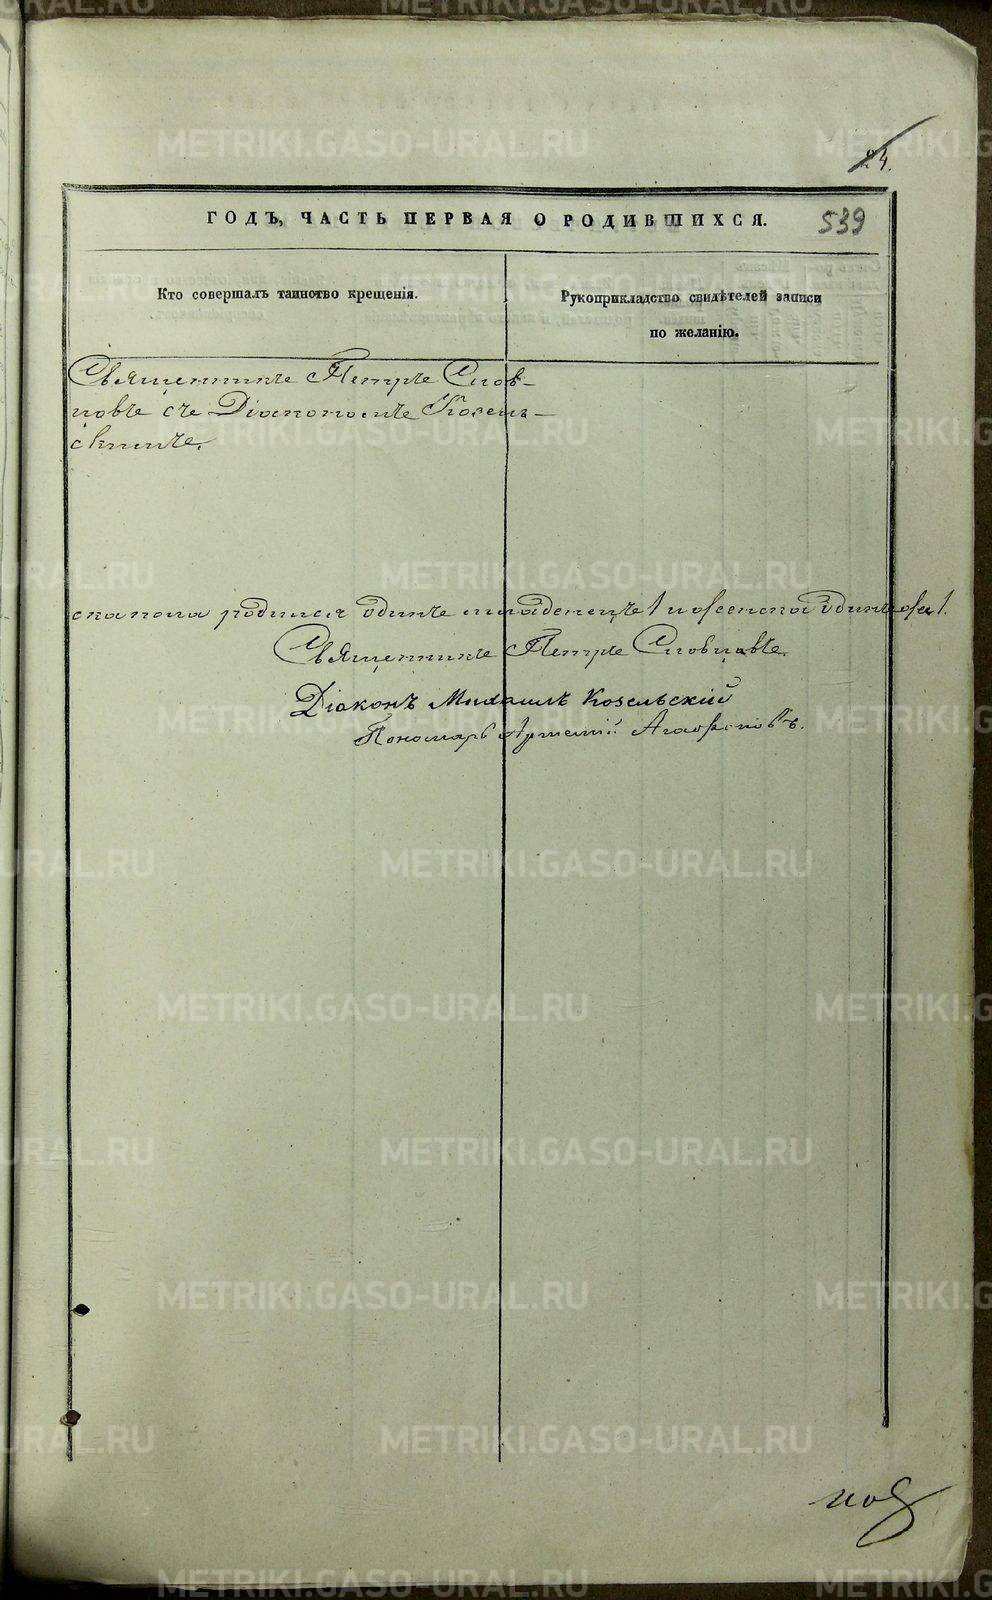 METRIKI.GASO-URAL.RU
24.
ГОДЪ, ЧАСТЬ ПЕРВАЯ О РОДИВШИХСЯ.
539
Кто совершалъ таинство крещенія.
Рукоприкладство свидѣтелей записи
по желанію.
Священникъ Петръ Слов-
цовъ съ Діакономъ Козель-
скимъ.
родился одинъ младенецъ 1 и женска одинъ
Священникъ Петръ Словцовъ.
Діаконъ Михаилъ Козельскій
Пономарь Артемій Агафоновъ.